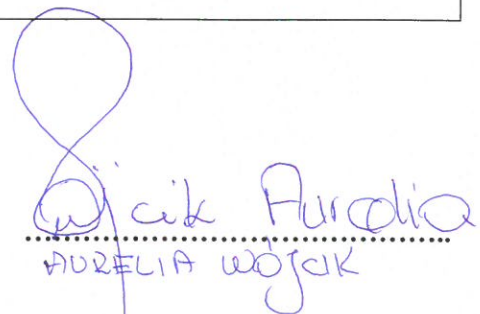 Wójcik Aurelia
AURELIA WÓJCIK